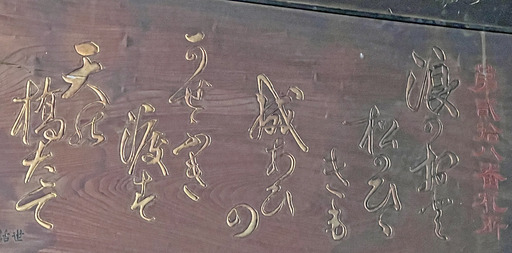 八番札所
浪の音
松のひゞ
きも
成あひ
の
かぜふき
渡す
天の
橋たて